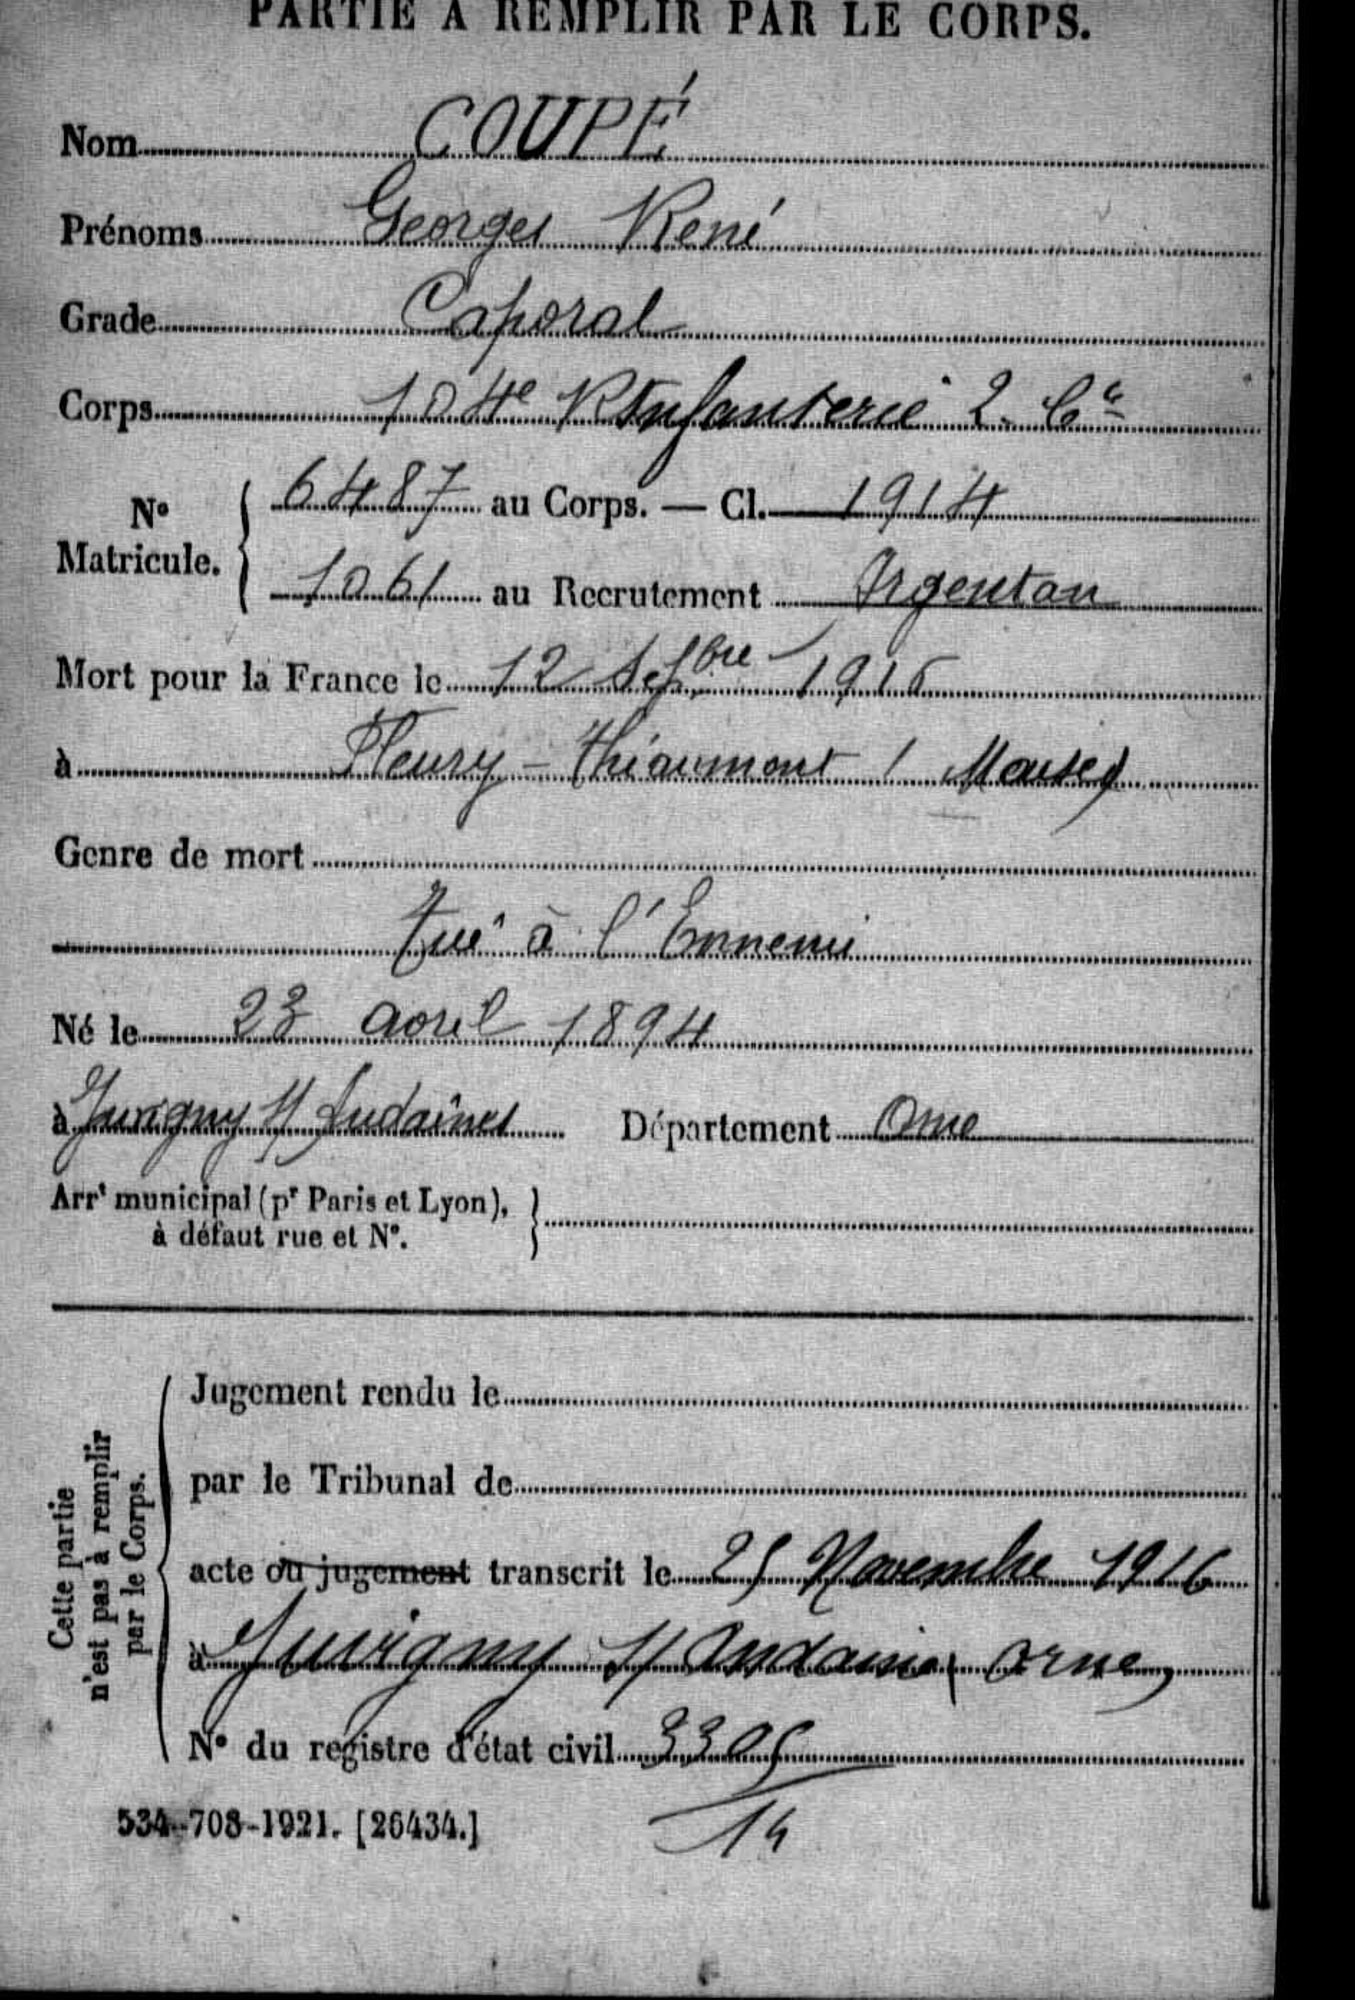 PARTIE À REMPLIR PAR LE CORPS.
Nom COUPÉ
Prénoms Georges René
Grade Caporal
Corps 104e R Infanterie 2. Cie
N° Matricule. { 6487 au Corps. — Cl. 1914
1061 au Recrutement Argentan
Mort pour la France le 12 Sepbre 1916
à Fleury - Thiaumont (Meuse)
Genre de mort
Tué à l'Ennemi
Né le 23 avril 1894
à Juvigny s/ Andaines Département Orne
Arrt municipal (pr Paris et Lyon),
à défaut rue et N°.
Cette partie
n'est pas à remplir
par le Corps.
Jugement rendu le
par le Tribunal de
acte ou jugement transcrit le 25 Novembre 1916
à Juvigny s/ Andaine (Orne)
N° du registre d'état civil 3305
14
534-708-1921. [26434.]